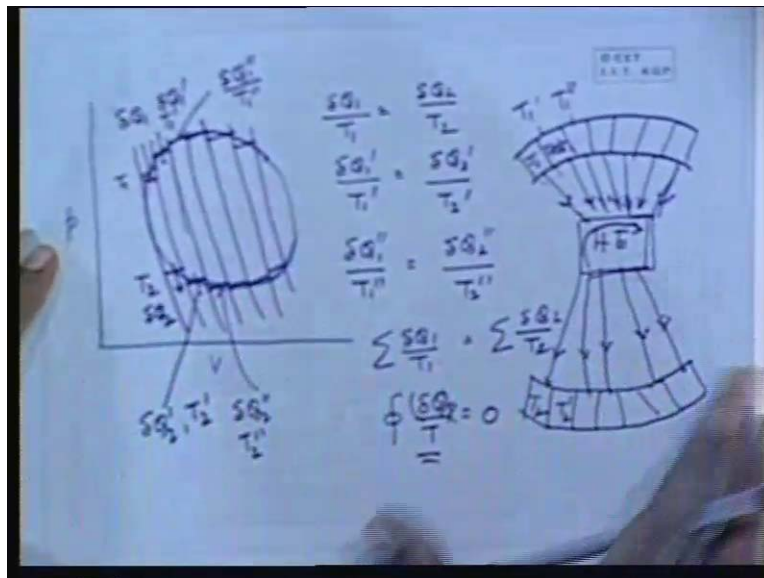 δQ₁ δQ₁' δQ₁''
T₁' T₁''
T₁
p
T₂
δQ₂
V
δQ₂', T₂' δQ₂''
T₂''
δQ₁/T₁ = δQ₂/T₂
δQ₁'/T₁' = δQ₂'/T₂'
δQ₁''/T₁'' = δQ₂''/T₂''
∑ δQ₁/T₁ = ∑ δQ₂/T₂
∮ (δQ)/T = 0
I.I.T. KGP
T₁' T₁''
T₁
H E
T₂ T₂'